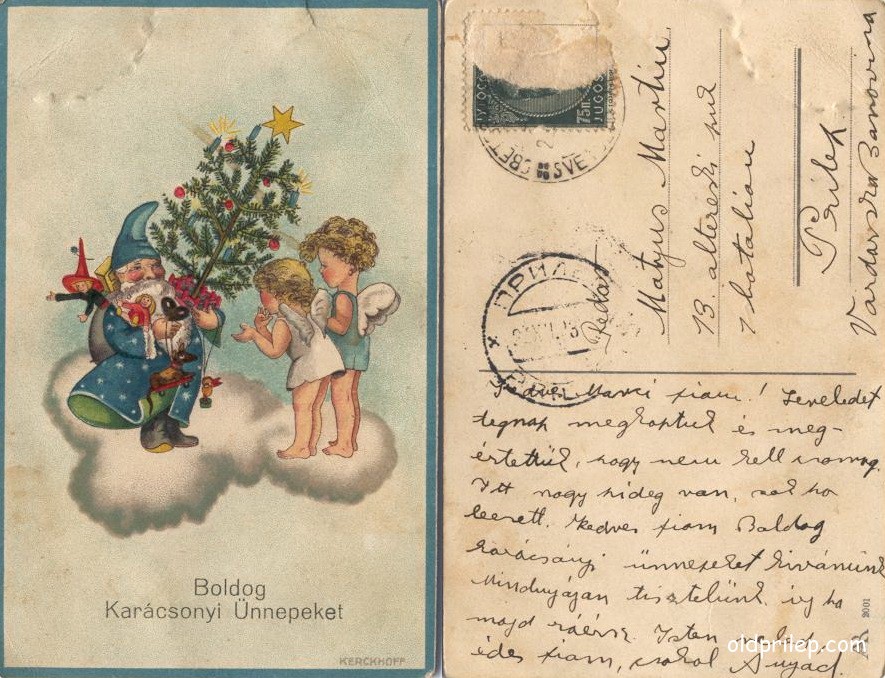 Boldog
Karácsonyi Ünnepeket
KERCKHOFF
75П.
JUGOS
SVE
ПРИЛЕ
Matyus Martin
13.
Prilep
Vardarska Banovina
Kedves Marci fiam! Leveledet
tegnap megkaptuk és meg-
értettük, hogy nem kell csomag.
Itt nagy hideg van, sok hó
leesett. Kedves fiam Boldog
karácsonyi ünnepeket kivánunk
Mindnyájan tisztelünk írj ha
majd ráérsz. Isten veled
édes fiam, csókol Anyád.
2001
oldprilep.com